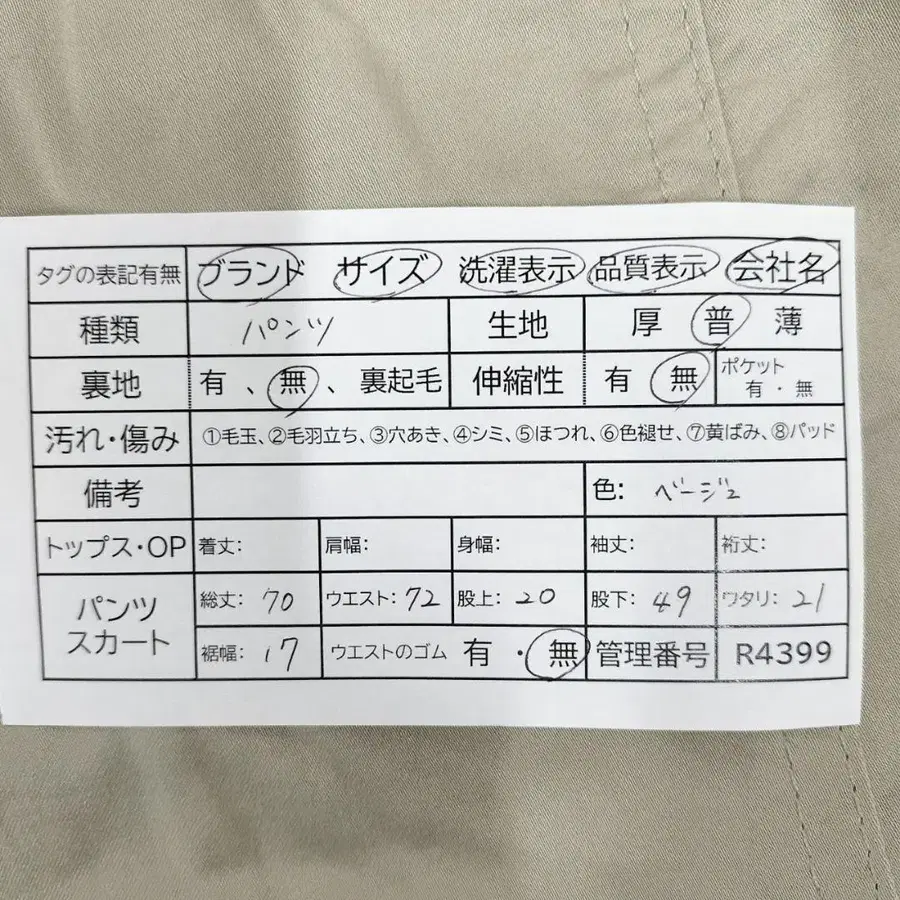 タグの表記有無 ブランド サイズ 洗濯表示 品質表示 会社名
種類 パンツ 生地 厚 普 薄
裏地 有、無、裏起毛 伸縮性 有 無 ポケット 有・無
汚れ・傷み ①毛玉、②毛羽立ち、③穴あき、④シミ、⑤ほつれ、⑥色褪せ、⑦黄ばみ、⑧パッド
備考 色: ベージュ
トップス・OP 着丈: 肩幅: 身幅: 袖丈: 裄丈:
パンツ スカート 総丈: 70 ウエスト: 72 股上: 20 股下: 49 ワタリ: 21
裾幅: 17 ウエストのゴム 有・無 管理番号 R4399